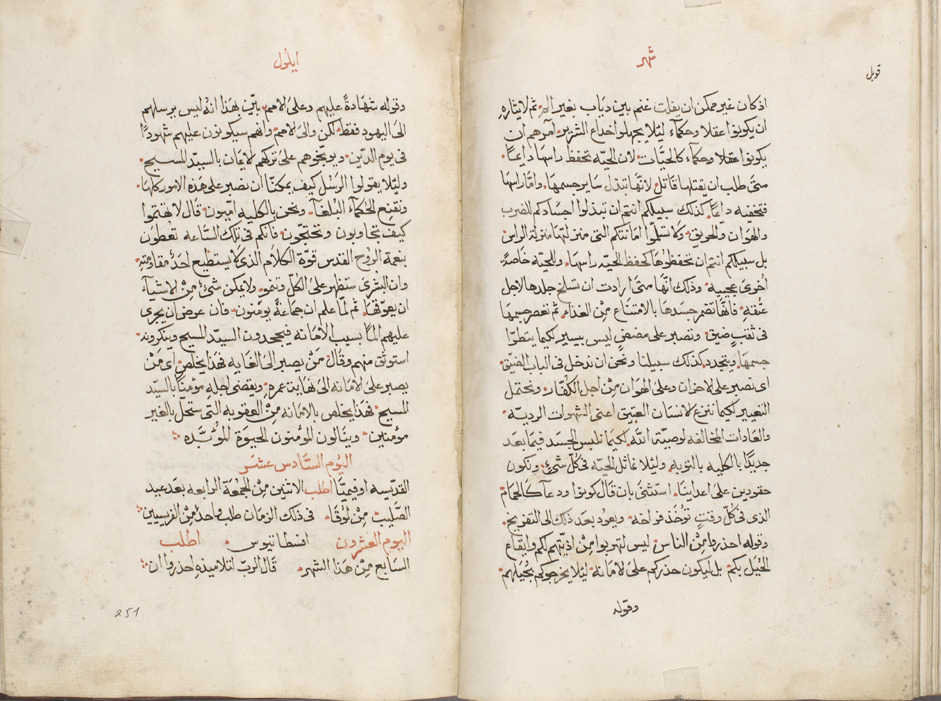 شهر
قوبل
اذ كان غير ممكن ان يفلت غنم بين دياب بغير اله ثم لايثاره
ان يكونوا عقلا وحكماء ليلا يجهلوا خداع الشرير امرهم ان
يكونوا عقلا وحكماء كالحيّات لان الحيّه تحفظ راسها دايمًا
متى طلب ان يقتلها قاتل لانّها تبذل ساير جسمها وامّا راسها
فتخفيه دايمًا كذلك سبيلكم انتم ان تبذلوا اجسادكم للضرب
والهوان والحريق ولا تسلّموا امانتكم التي منزلتها منزلة الراس
بل سبيلكم انتم ان تحفظوها كحفظ الحيّه راسها وللحيّه خاصّه
اخرى عجيبه وذلك انّها متى ارادت ان تسلخ جلدها لاجل
عتقه فانّها تضمر جسدها بالامتناع من الغداء ثم تعصر جسمها
في ثقب ضيق وتصبر على مضض ليس بيسير لكيما
جسمها ويتجدد كذلك سبيلنا ونحن ان ندخل في الباب الضيّق
اى نصبر على الاحزان وعلى الهوان من اجل الكفّار ونحتمل
التعيير لكيما ننزع الانسان العتيق اعنى الشهوات الرديّه
والعادات المخالفه لوصيّة الله لكيما نلبس الجسد فيما بعد
جديدًا بالكليه بالتوبه وليلا نماثل الحيّه في كلّ شيء ونكون
حقودين على اعداينا استثنى بان قال كونوا ودعاء كالحمام
الذى في كلّ وقت تؤخذ فراخه ويعود بعد ذلك الى التفريخ
وقوله احذروا من الناس ليس لتهربوا من اذيتهم لكم وايقاع
الحيل بكم بل ليكون حذركم على الامانه ليلا يخرجوكم بحيلهم
وقوله
ايلول
وقوله شهادةً عليهم وعلى الامم بيّن بهذا انه ليس يرسلهم
الى اليهود فقط لكن والى الامم وانهم سيكونون عليهم شهودًا
في يوم الدين ويوبّخوهم على تركهم الايمان بالسيّد المسيح
وليلا يقولوا الرسل كيف يمكننا ان نصبر على هذه الامور كلها
ونقنع الحكماء البلغاء ونحن بالكليه امّيون قال لا تهتموا
كيف تجاوبون وتحتجّون فانكم في تلك السّاعه تعطون
بنعمة الروح القدس قوّة الكلام الذى لا يستطيع احدٌ مقاومته
وان البشرى ستظهر على الكلّ وتنمو ولا يمكن شيءٌ من الاشياء
ان يعوّقها ثم لمّا علم ان جماعة يومنون فان عرض ان يجرى
عليهم الما بسبب الامانه فيجحدون السيّد المسيح وينكرونه
استوثق منهم وقال من يصبر الى الغايه فهذا يخلص اى من
يصبر على الامانه الى نهاية عمره ويقضى اجله مؤمنًا بالسيّد
المسيح فهذا يخلص بالامانه من العقوبه التي ستحلّ بالغير
مؤمنين وينالون المؤمنون الحيوة المؤبّده
اليوم السّادس عشر
القديسه اوفيميّا اطلب الاثنين من الجمعة الرابعه بعد عيد
الصّليب من لوقا في ذلك الزمان طلب واحد من الفريسيين
اليوم العشرون اسطاتيوس اطلب
السابع من هذا الشهر قال الرب لتلاميذه احذروا ان
251